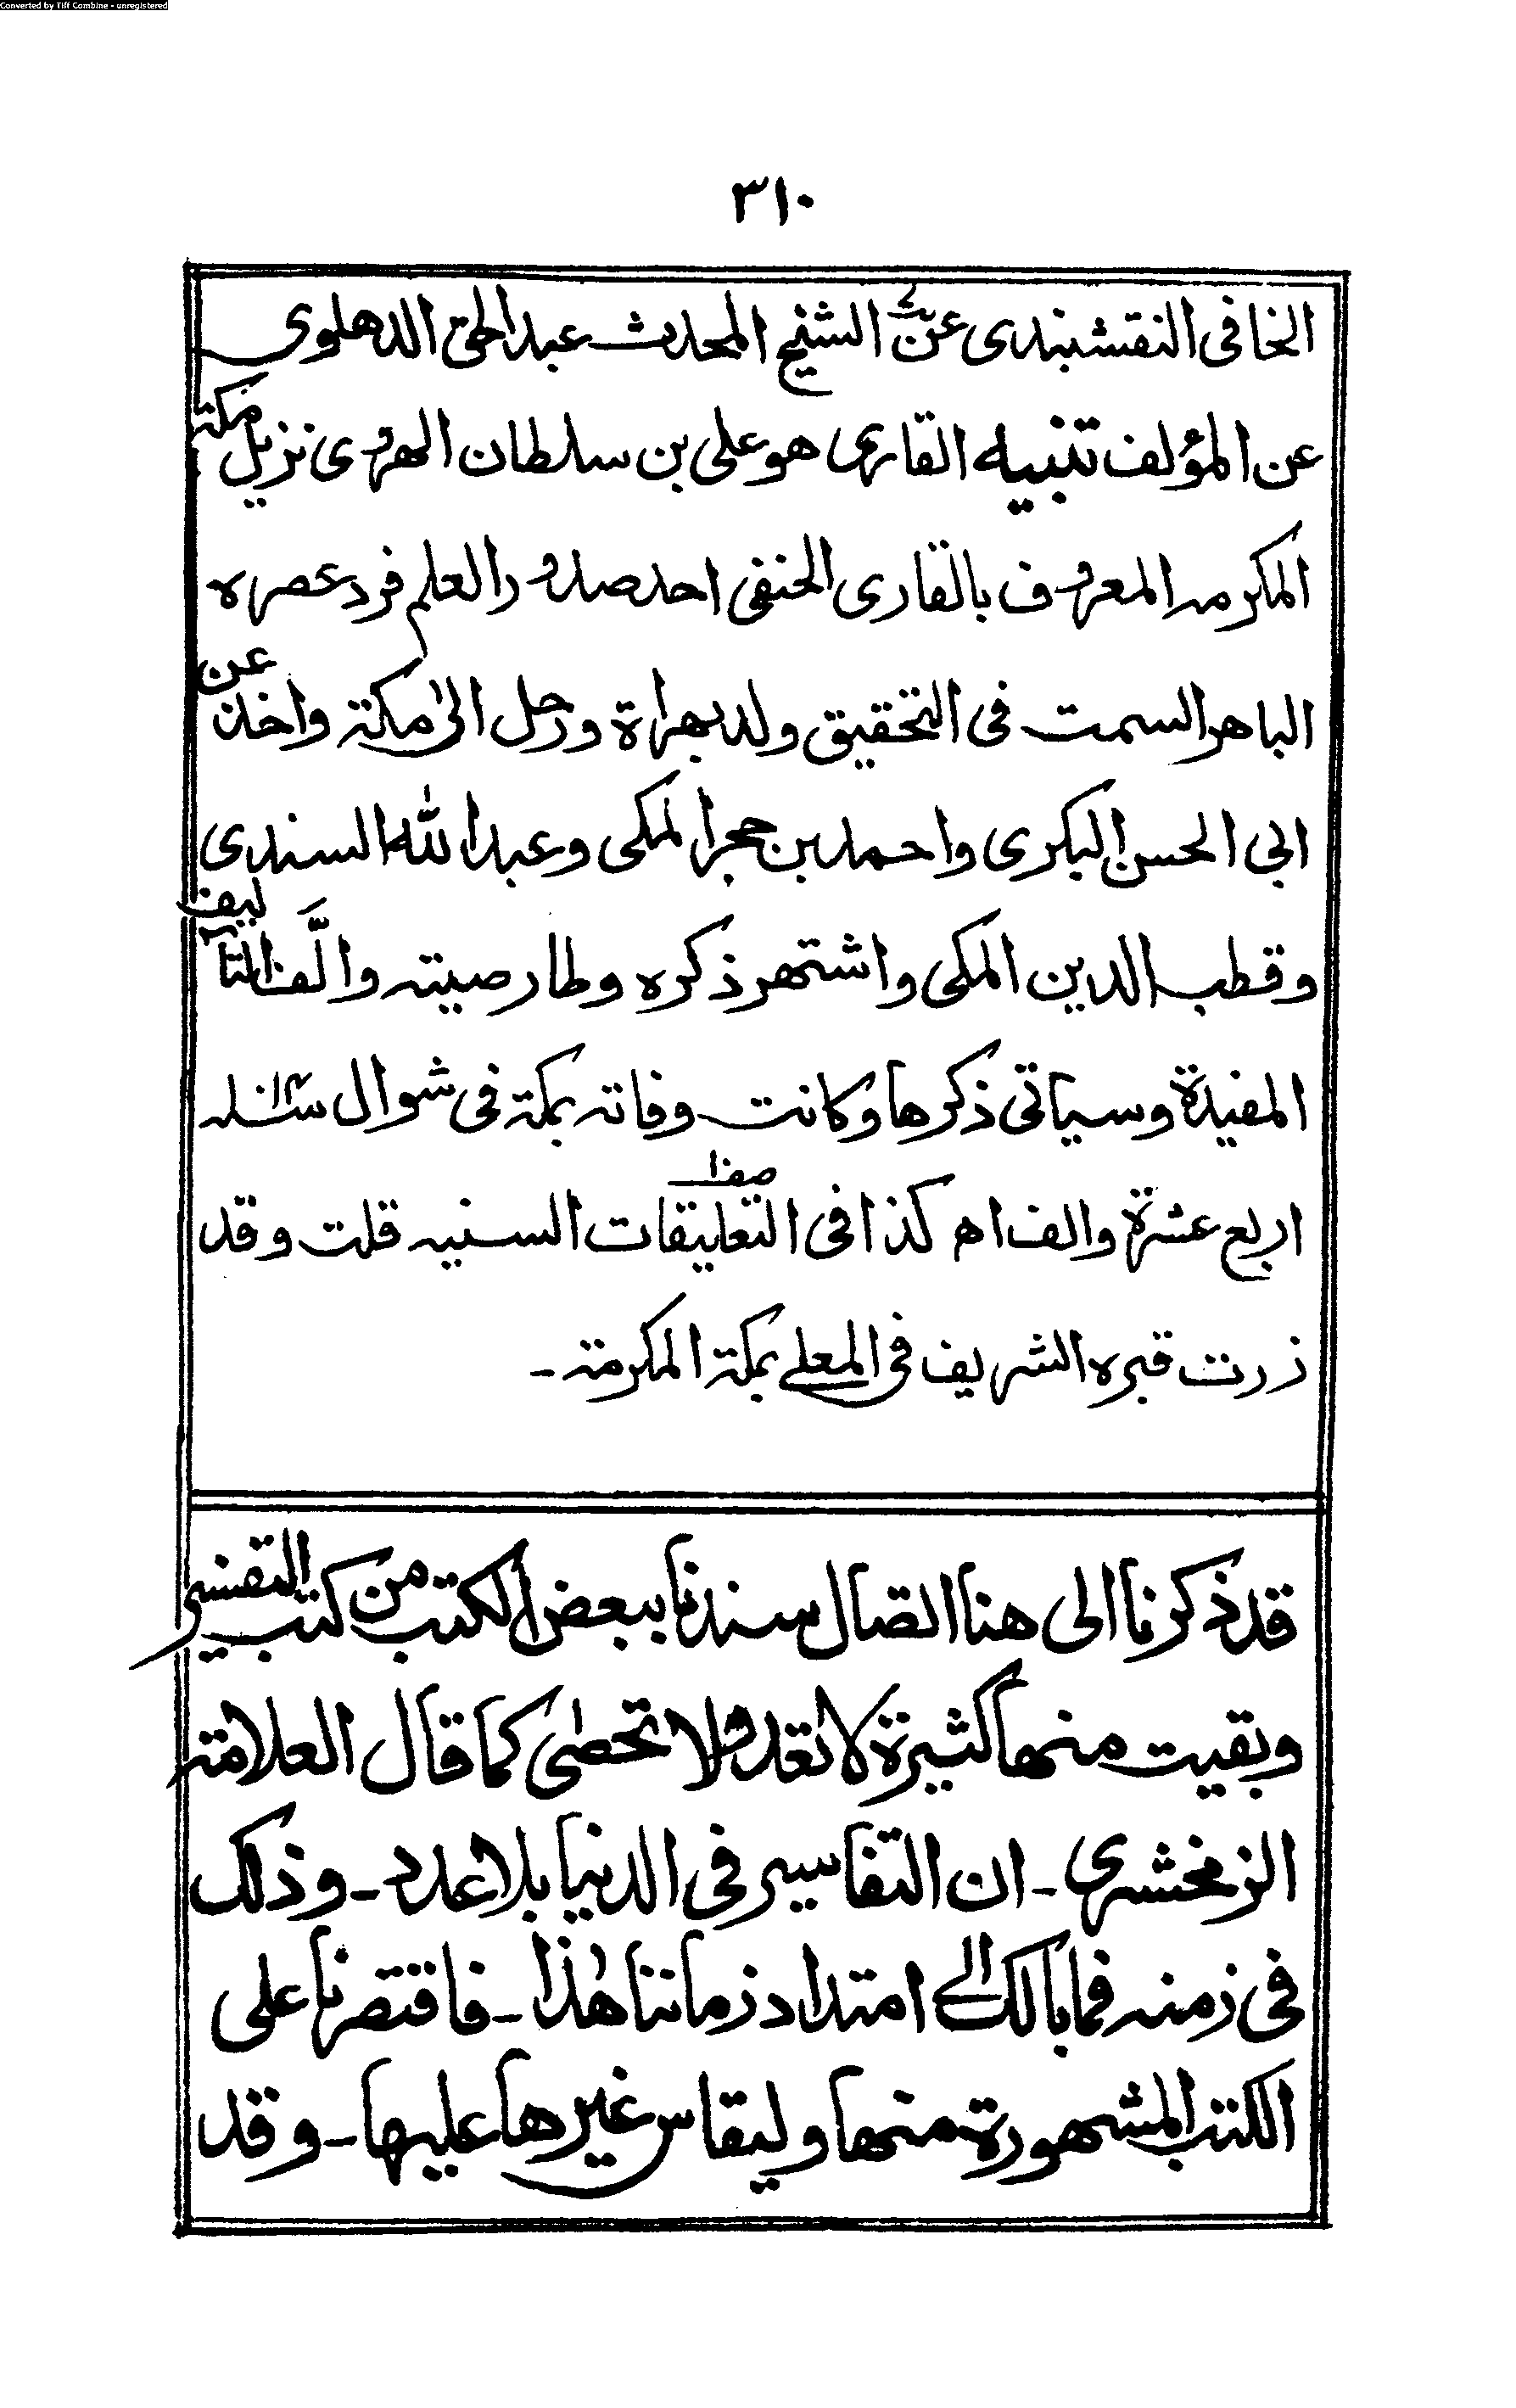 Converted by Tiff Combine - unregistered
٣١٠
الخافى النقشبندى عن الشيخ المحدث عبد الحق الدهلوى
عن المؤلف تنبيه القارى هو على بن سلطان الهروى نزيل مكة
المكرمه المعروف بالقارى الحنفى احد صدور العلم فرد عصره
الباهر السمت فى التحقيق ولد بهراة ورحل الىٰ مكة واخذ عن
ابي الحسن البكرى واحمد بن حجر المكى وعبد اللّٰه السندى
وقطب الدين المكى واشتهر ذكره وطار صيته والَّف التآليف
المفيدة وسياتى ذكرها وكانت وفاته بمكة فى شوال سنه ١٠١٤
اربع عشرة والف اه كذا فى التعليقات السنيه صفا قلت وقد
زرت قبره الشريف فى المعلے بمكة المكرمة ـ
قد ذكرنا الى هنا اتصال سندنا ببعض الكتب من كتب التفسير
وبقيت منها كثيرة لا تعد ولا تحصٰى كما قال العلامة
الزمخشرى ـ ان التفاسير فى الدنيا بلا عدد ـ وذلك
فى زمنه فما بالك الے امتداد زماننا هٰذا ـ فاقتصرنا على
الكتب المشهورة منها وليقاس غيرها عليها ـ وقد